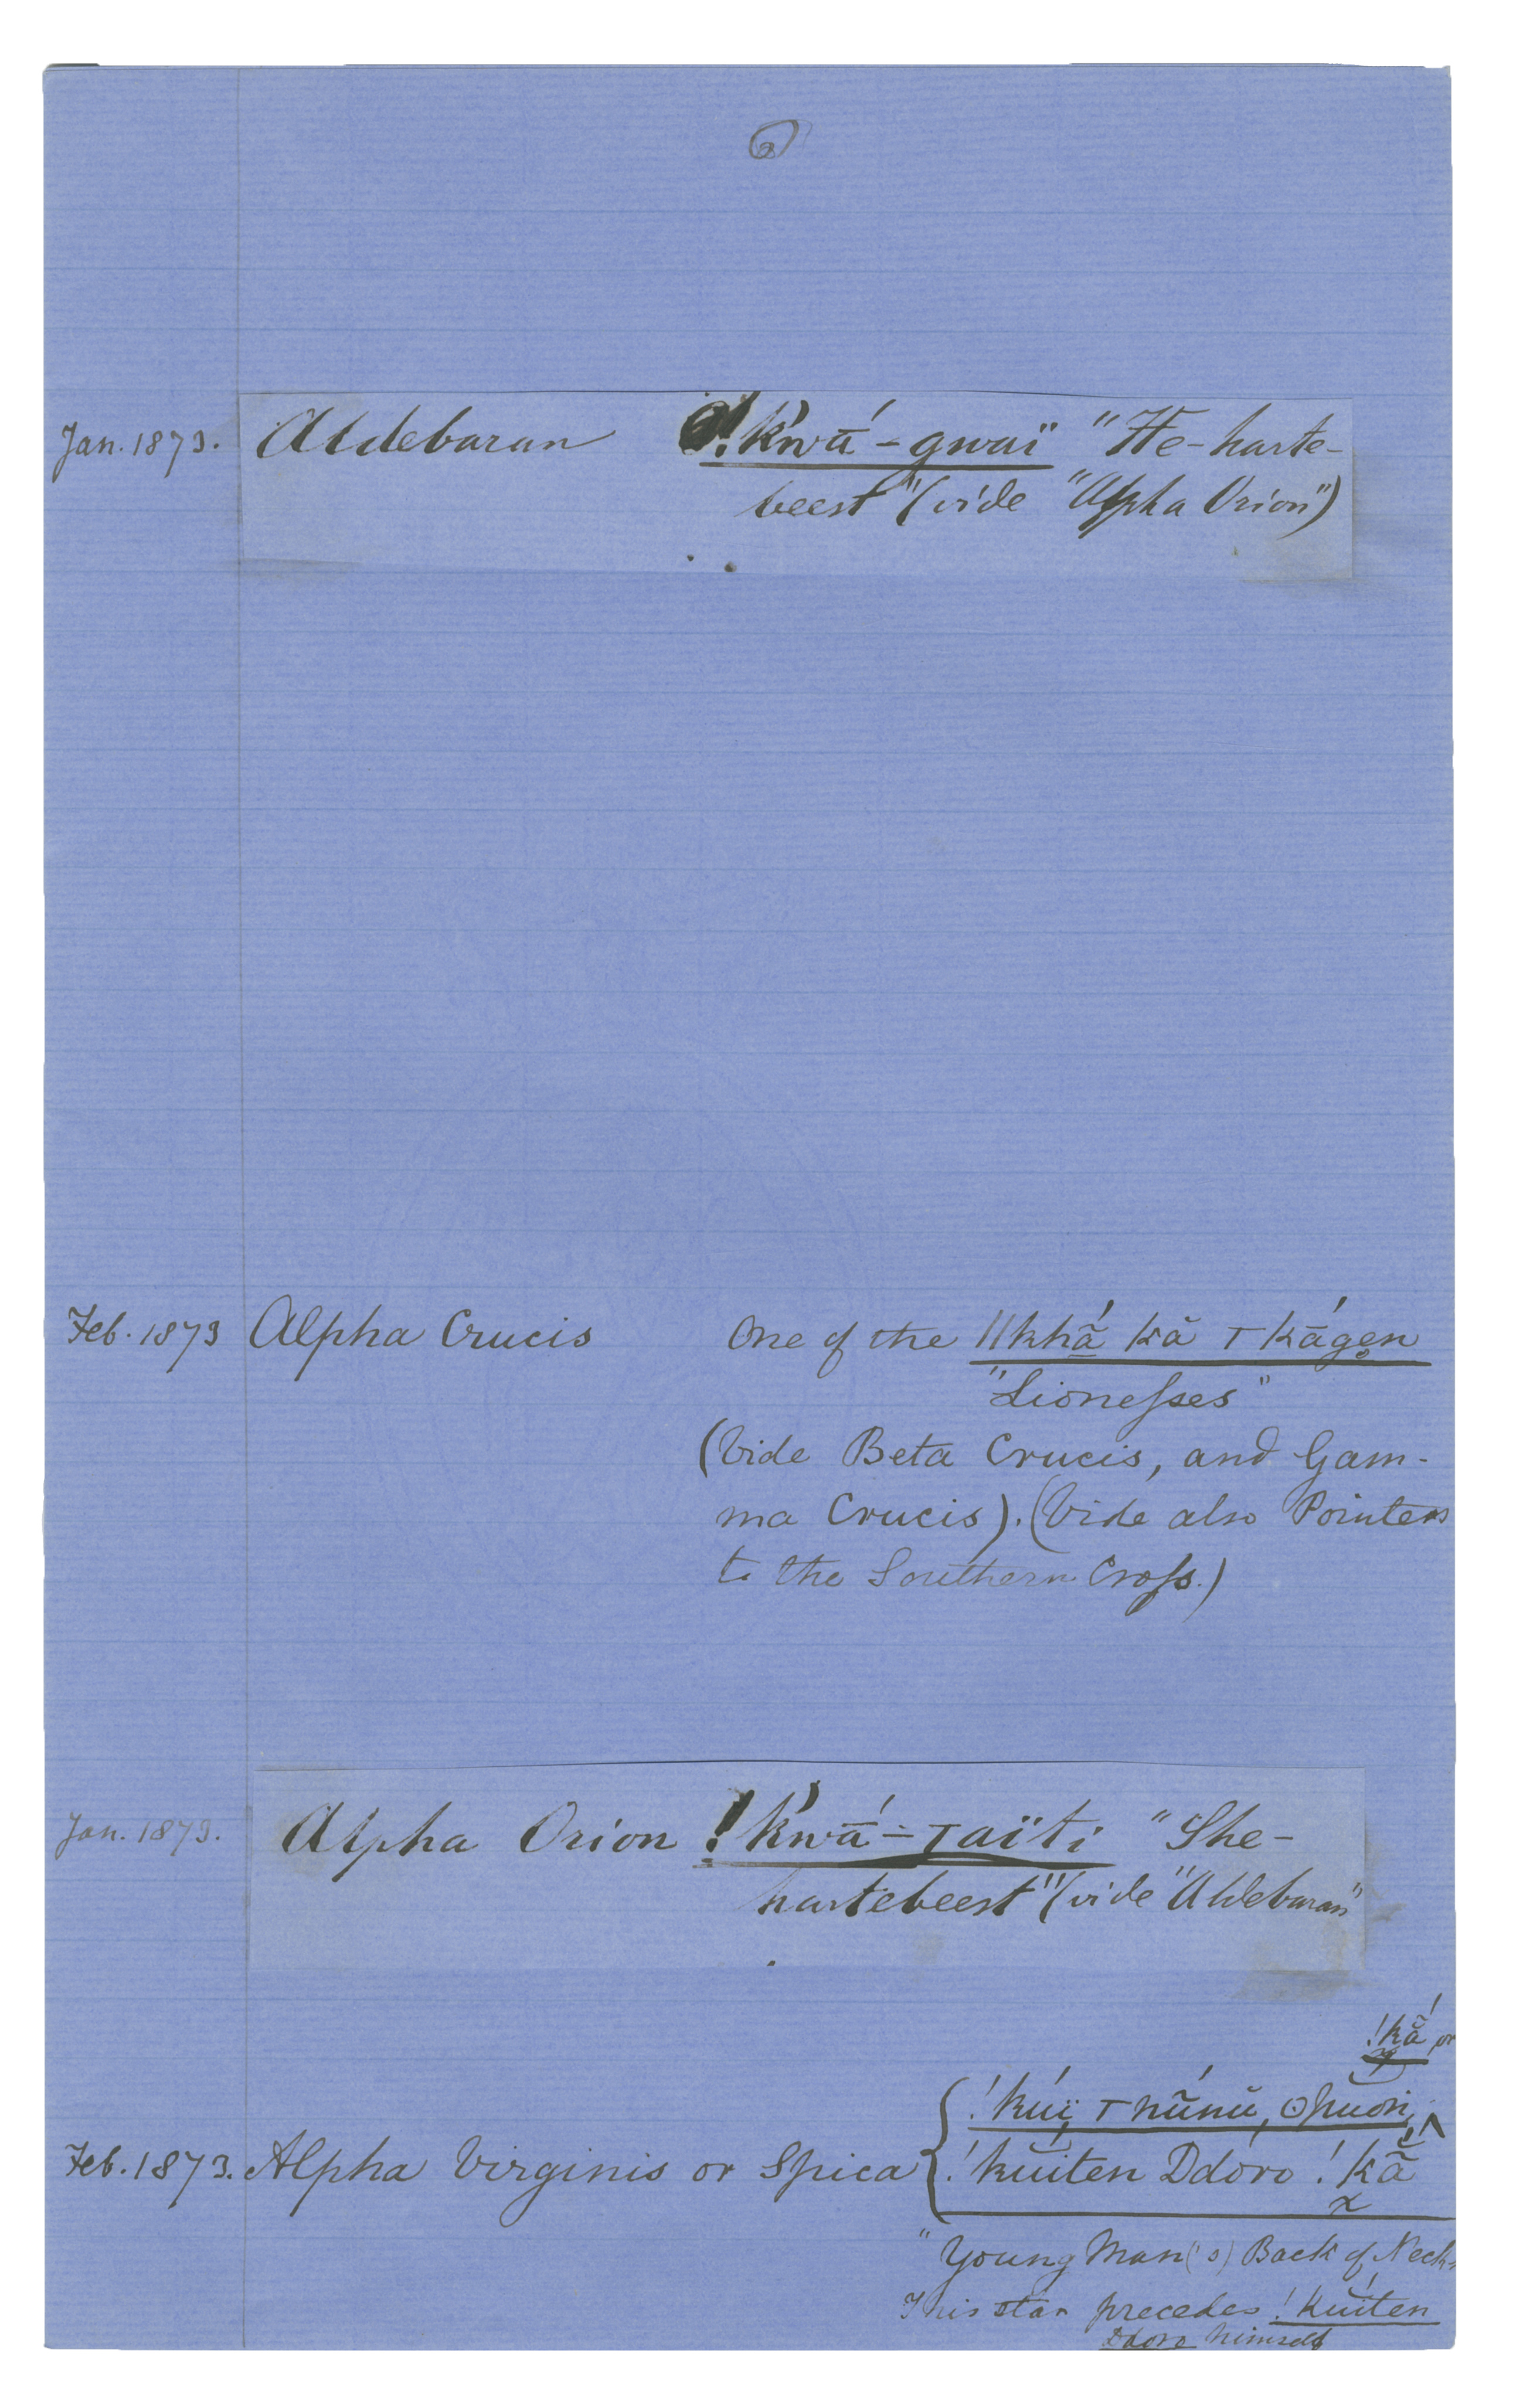 Jan. 1873. Aldebaran !k'wā́-gwaï "He-harte-
beest" (vide "Alpha Orion")
Feb. 1873 Alpha Crucis One of the ||khā̃́ kă ⊤ kāgen
"Lionesses"
(Vide Beta Crucis, and Gam-
ma Crucis). (Vide also Pointers
to the Southern Cross.)
Jan. 1873. Alpha Orion !k'wā́-⊤aïti "She-
hartebeest" (vide "Aldebaran"
!kā̃́ or
!kúï ⊤nū̆nŭ,
Feb. 1873. Alpha Virginis or Spica !kuiten Ddóro !kā̃
"Young Man('s) Back of Neck"
This star precedes !kuiten
Ddoro himself